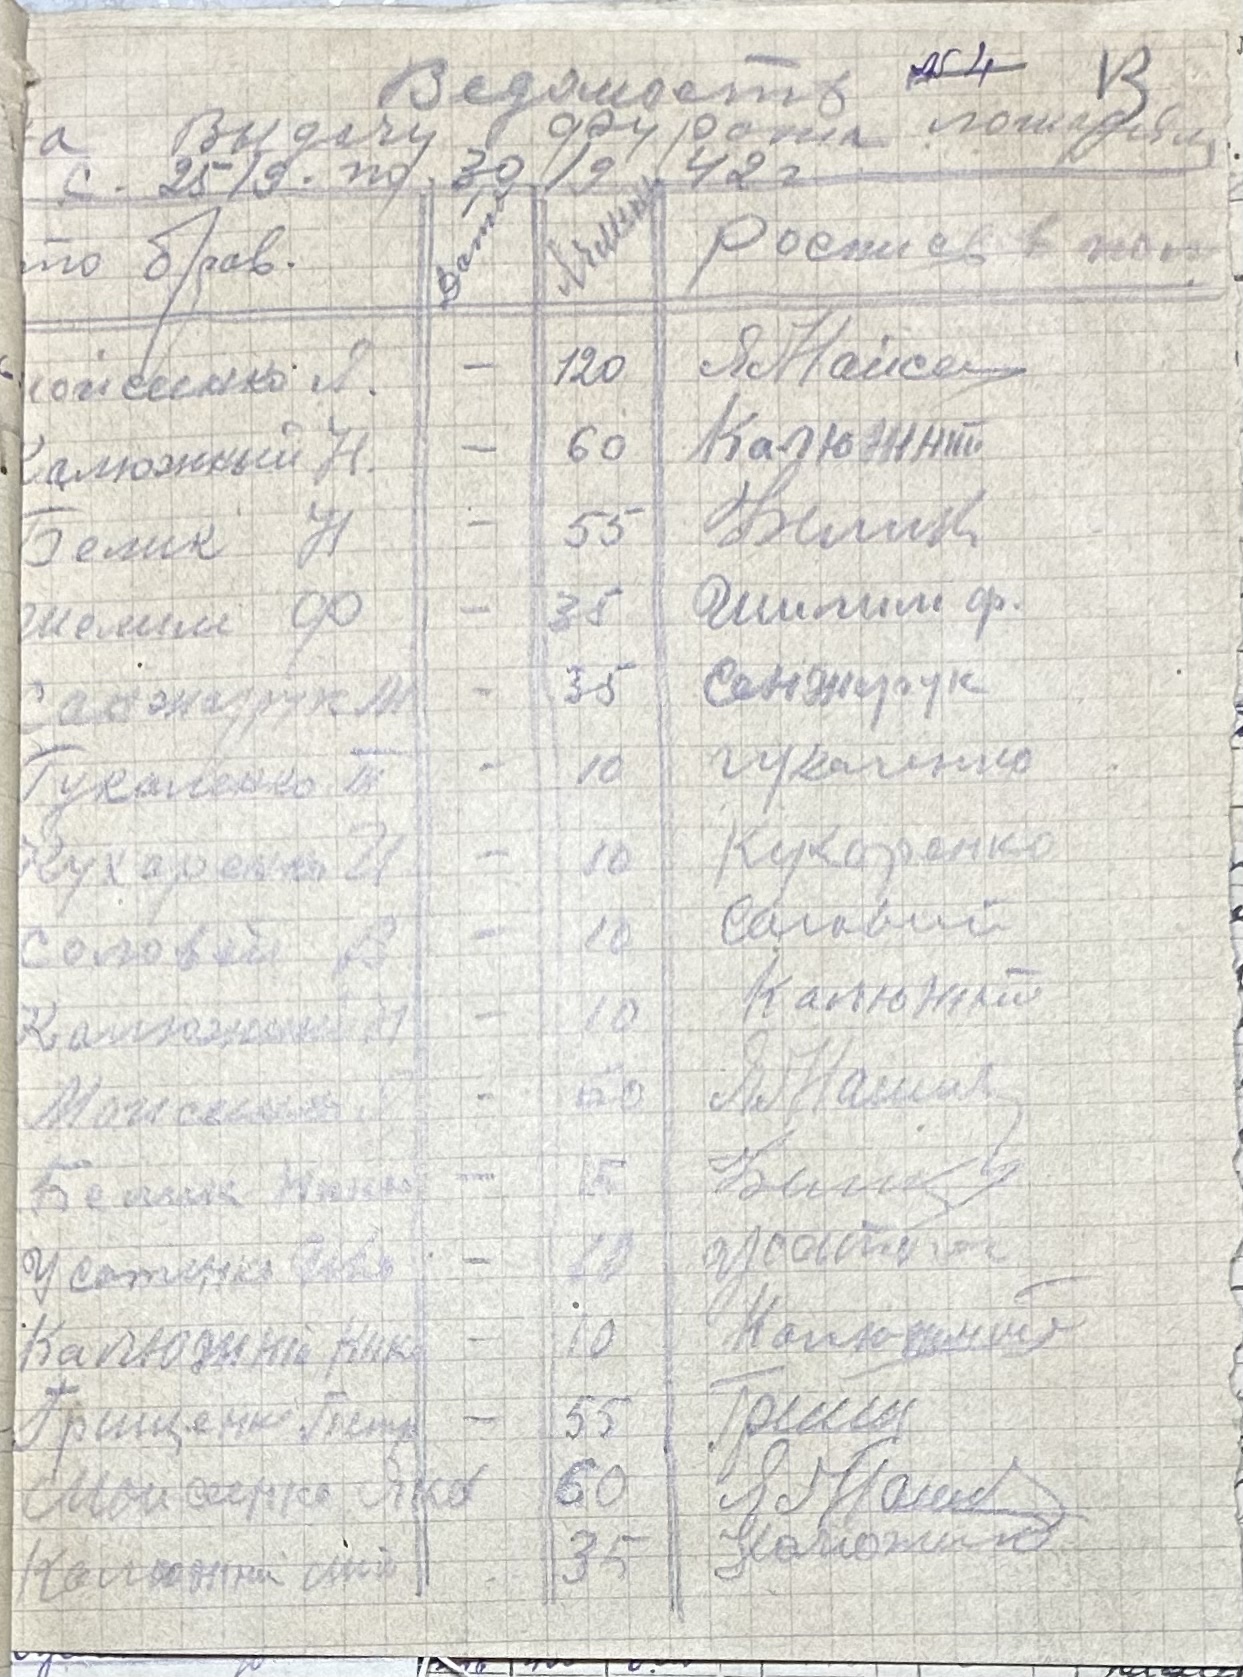 Ведомость №4 В
на Выдачу фуража лошадям
с. 25/9. по. 30/9. 42 г
то брав. Дата Ячмень Роспись в пол
Мойсеенко Я. – 120 Я Мойсе
Калюжный Н. – 60 Калюжний
Белик Н – 55 НБелик
Шелим Ф – 35 Шилим ф.
Санжарук М - 35 Санжарук
Гукаленко П - 10 гукаленко
Кухаренко И – 10 Кухаренко
Соловей В – 10 Саловий
Калюжный Н – 10 Калюжний
Мойсеенко Я - Я Мойсе
Белик – 15 НБелик
Усатенко – 10
Калюжний Ник – 10 Калюжний
Грищенко Петр – 55 Грищ
Мойсеенко Яков 60 Я Мойсе
Калюжний 35 Калюжний